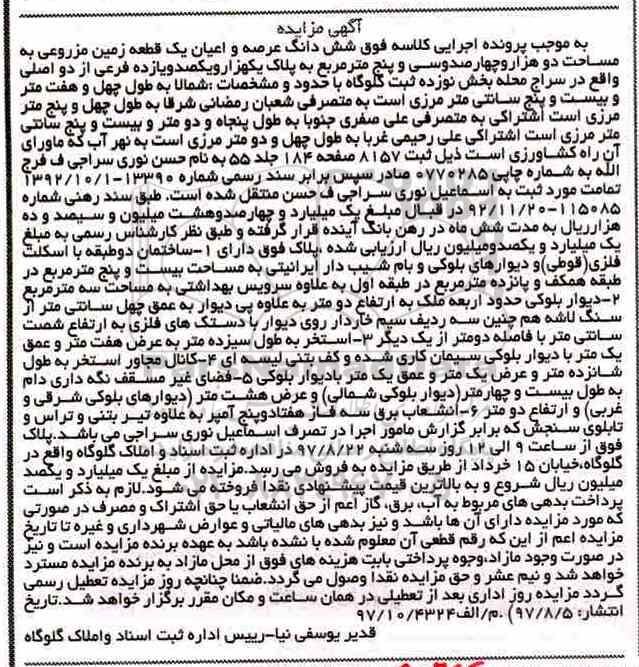 آگهی مزایده
به موجب پرونده اجرایی کلاسه فوق شش دانگ عرصه و اعیان یک قطعه زمین مزروعی به
مساحت دو هزاروچهارصدوسی و پنج مترمربع به پلاک یکهزارویکصدویازده فرعی از دو اصلی
واقع در سراج محله بخش نوزده ثبت گلوگاه با حدود و مشخصات :شمالا به طول چهل و هفت متر
و بیست و پنج سانتی متر مرزی است به متصرفی شعبان رمضانی شرقا به طول چهل و پنج متر
مرزی است اشتراکی به متصرفی علی صفری جنوبا به طول پنجاه و دو متر و بیست و پنج سانتی
متر مرزی است اشتراکی علی رحیمی غربا به طول چهل و دو متر مرزی است به نهر آب که ماورای
آن راه کشاورزی است ذیل ثبت ۸۱۵۷ صفحه ۱۸۴ جلد ۵۵ به نام حسن نوری سراجی ف فرج
الله به شماره چاپی ۰۷۷۰۲۸۵ صادر سپس برابر سند رسمی شماره ۱۳۳۹۰-۱۳۹۲/۱۰/۱
تمامت مورد ثبت به اسماعیل نوری سراجی ف حسن منتقل شده است. طبق سند رهنی شماره
۱۱۵۰۸۵-۹۲/۱۱/۲۰ در قبال مبلغ یک میلیارد و چهارصدوهشت میلیون و سیصد و ده
هزارریال به مدت شش ماه در رهن بانک آینده قرار گرفته و طبق نظر کارشناس رسمی به مبلغ
یک میلیارد و یکصدومیلیون ریال ارزیابی شده ،پلاک فوق دارای ۱-ساختمان دوطبقه با اسکلت
فلزی(قوطی)و دیوارهای بلوکی و بام شیب دار ایرانیتی به مساحت بیست و پنج مترمربع در
طبقه همکف و پانزده مترمربع در طبقه اول به علاوه سرویس بهداشتی به مساحت سه مترمربع
۲-دیوار بلوکی حدود اربعه ملک به ارتفاع دو متر به علاوه پی دیوار به عمق چهل سانتی متر از
سنگ لاشه هم چنین سه ردیف سیم خاردار روی دیوار با دستک های فلزی به ارتفاع شصت
سانتی متر با فاصله دومتر از یک دیگر ۳-استخر به طول سیزده متر به عرض هفت متر و عمق
یک متر با دیوار بلوکی سیمان کاری شده و کف بتنی لیسه ای ۴-کانال مجاور استخر به طول
شانزده متر و عرض یک متر و عمق یک متر بادیوار بلوکی ۵-فضای غیر مسقف نگه داری دام
به طول بیست و چهارمتر(دیوار بلوکی شمالی) و عرض هشت متر (دیوارهای بلوکی شرقی و
غربی) و ارتفاع دو متر ۶-انشعاب برق سه فاز هفتادوپنج آمپر به علاوه تیر بتنی و تراس و
تابلوی سنجش که برابر گزارش مامور اجرا در تصرف اسماعیل نوری سراجی می باشد.پلاک
فوق از ساعت ۹ الی ۱۲ روز سه شنبه ۹۷/۸/۲۲ در اداره ثبت اسناد و املاک گلوگاه واقع در
گلوگاه،خیابان ۱۵ خرداد از طریق مزایده به فروش می رسد.مزایده از مبلغ یک میلیارد و یکصد
میلیون ریال شروع و به بالاترین قیمت پیشنهادی نقدا فروخته می شود.لازم به ذکر است
پرداخت بدهی های مربوط به آب، برق، گاز اعم از حق انشعاب یا حق اشتراک و مصرف در صورتی
که مورد مزایده دارای آن ها باشد و نیز بدهی های مالیاتی و عوارض شهرداری و غیره تا تاریخ
مزایده اعم از این که رقم قطعی آن معلوم شده یا نشده باشد به عهده برنده مزایده است و نیز
در صورت وجود مازاد،وجوه پرداختی بابت هزینه های فوق از محل مازاد به برنده مزایده مسترد
خواهد شد و نیم عشر و حق مزایده نقدا وصول می گردد.ضمنا چنانچه روز مزایده تعطیل رسمی
گردد مزایده روز اداری بعد از تعطیلی در همان ساعت و مکان مقرر برگزار خواهد شد.تاریخ
انتشار: ۹۷/۸/۵) .م/الف۹۷/۱۰/۴۳۲۴
قدیر یوسفی نیا-رییس اداره ثبت اسناد واملاک گلوگاه